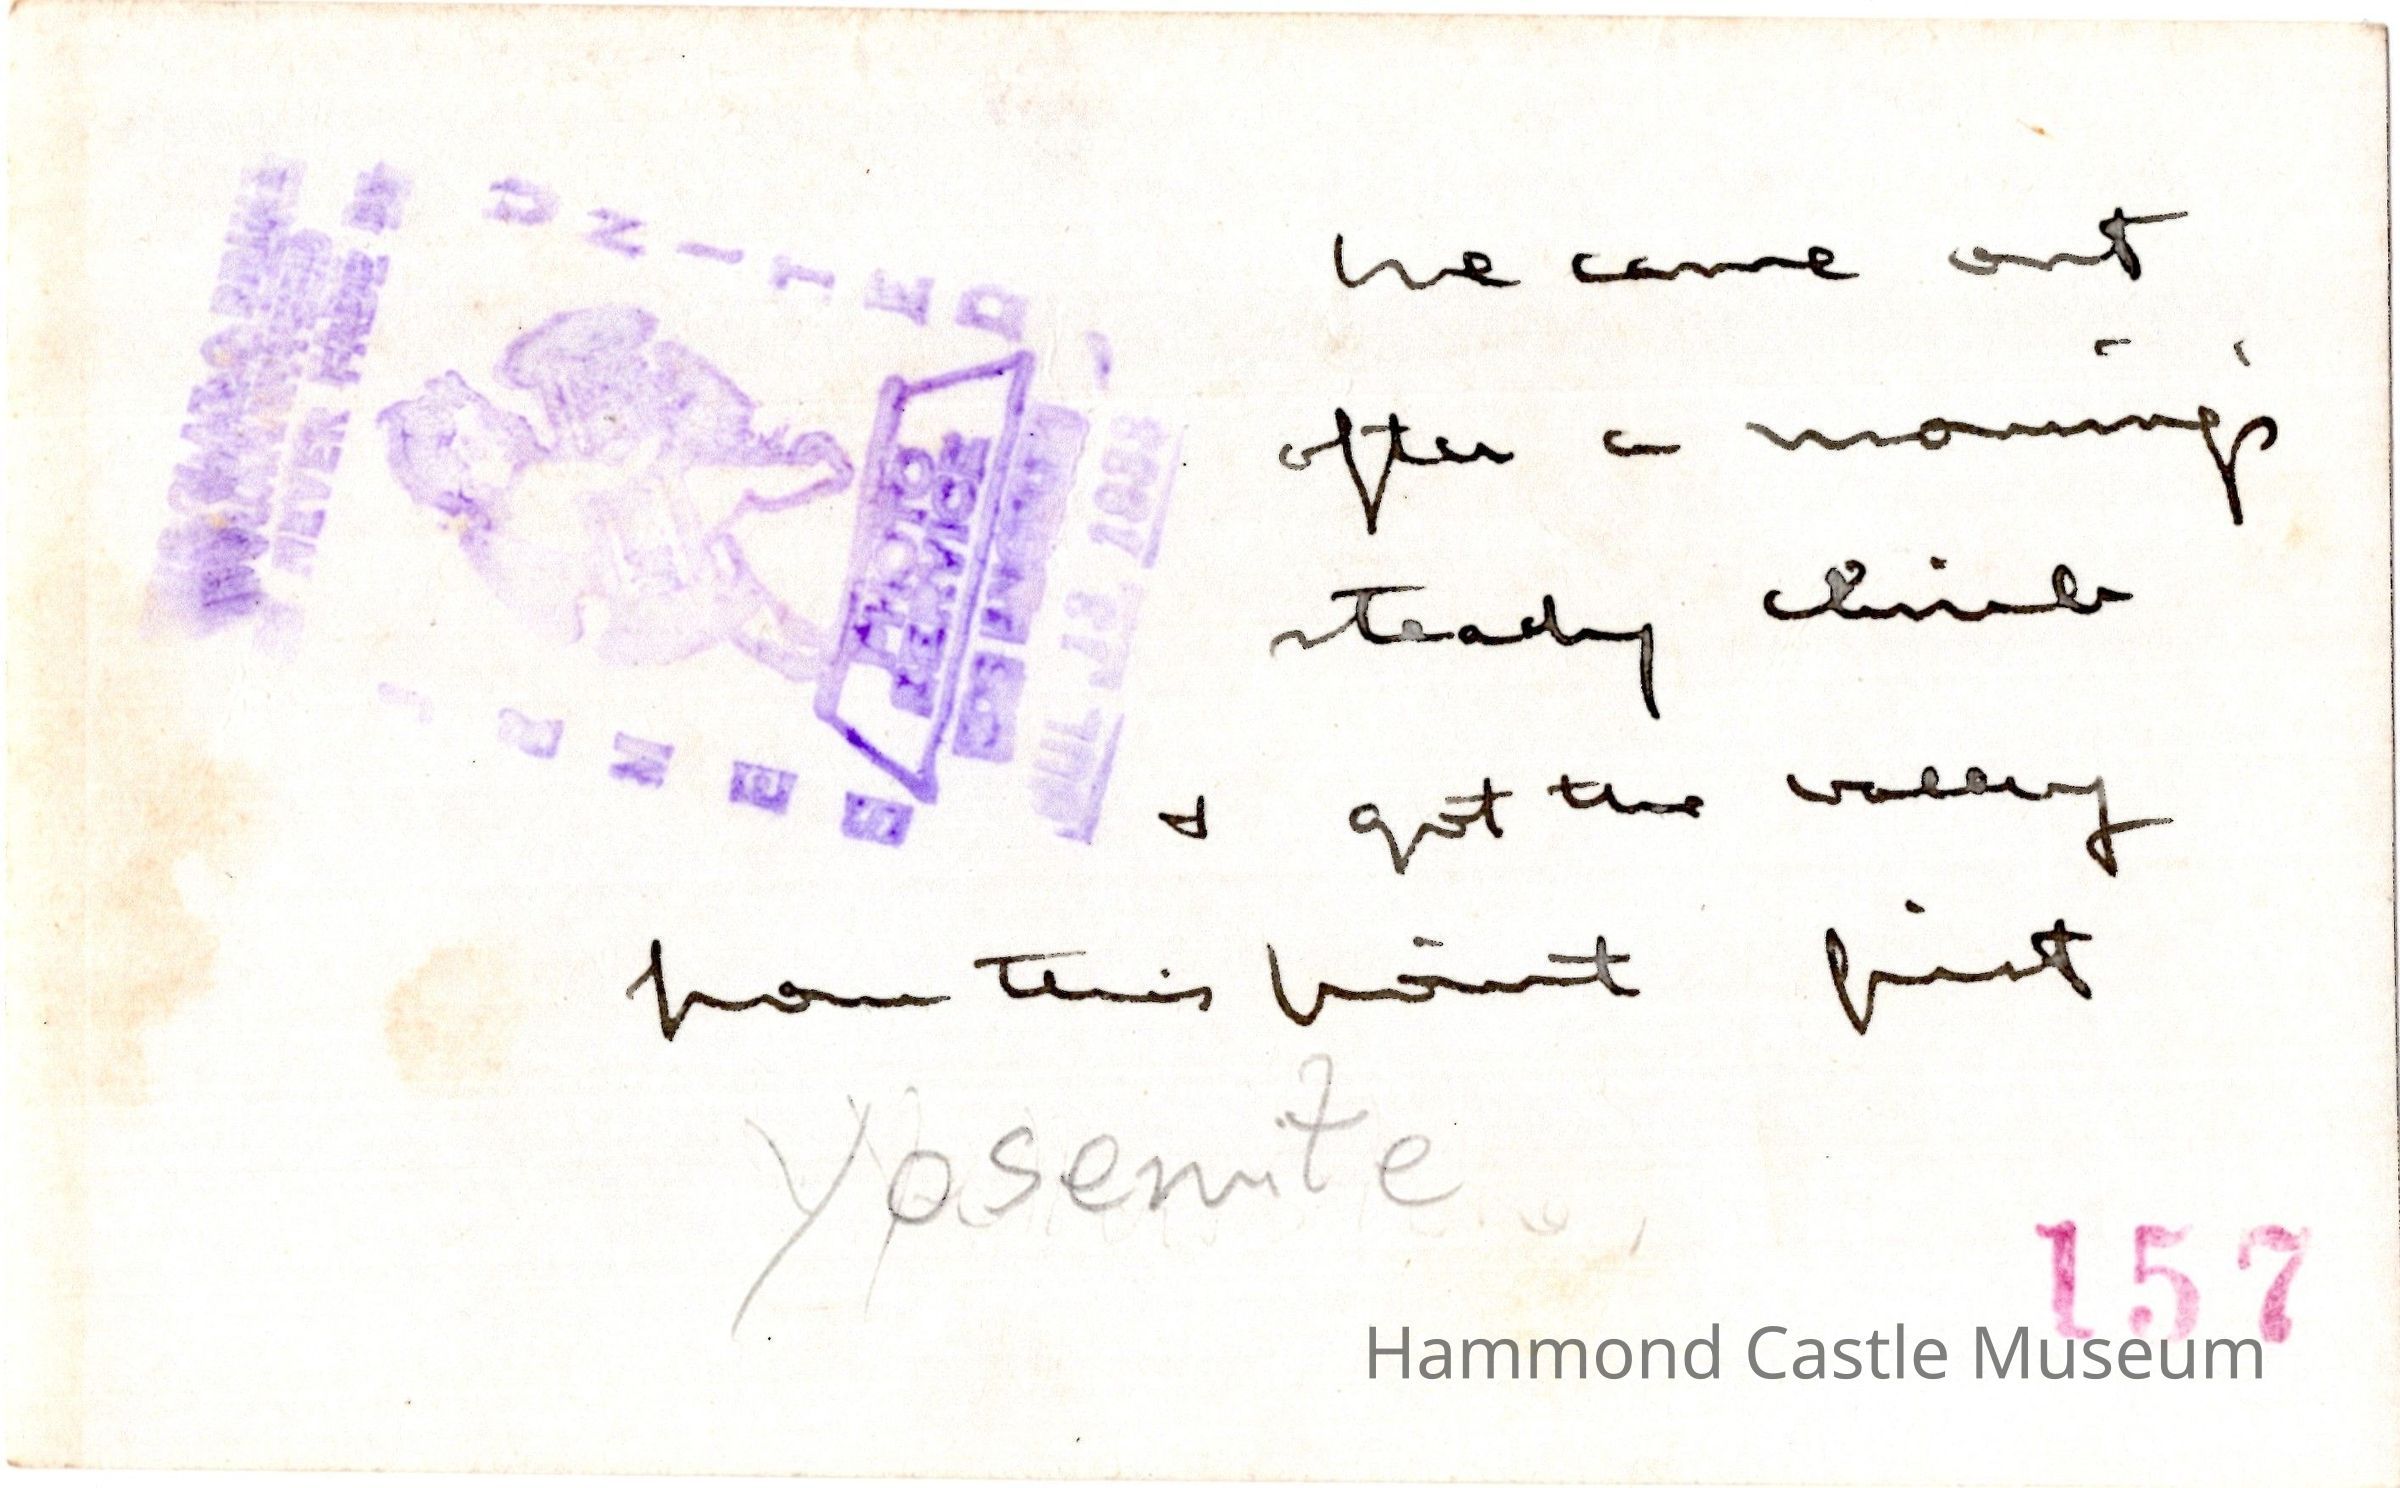 We came out
after a morning's
steady climb
& got the valley
from this point first
Yosemite
157
Hammond Castle Museum
UNITED
PHOTO
SERVICE
JUL 13 1933